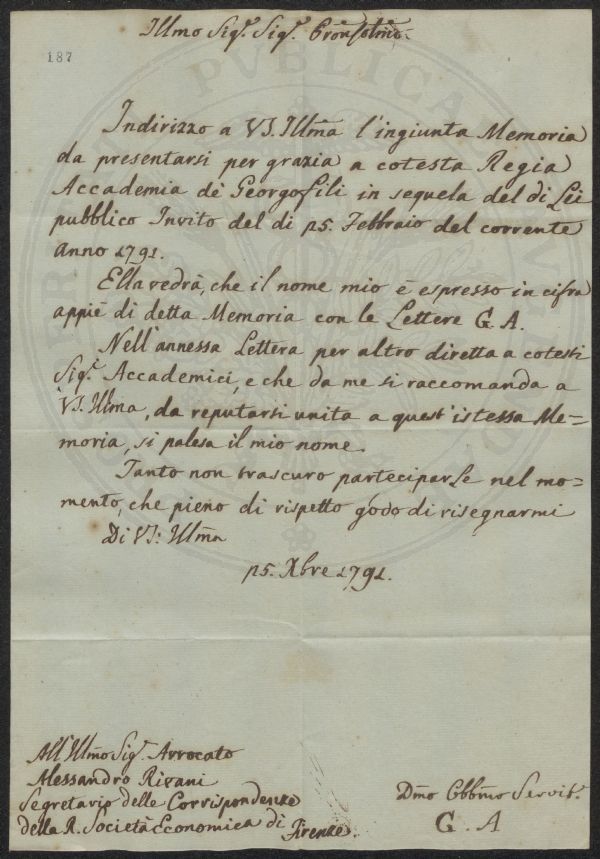 Illmo Sig.r Sig.r Pron Colmo.
187
Indirizzo a VS. Illma l'ingiunta Memoria
da presentarsi per grazia a cotesta Regia
Accademia de Georgofili in sequela del di Lei
pubblico Invito del di 15. Febbraio del corrente
anno 1791.
Ella vedrà, che il nome mio è espresso in cifra
appiè di detta Memoria con le Lettere G. A.
Nell'annessa Lettera per altro diretta a cotesti
Sig.i Accademici, e che da me si raccomanda a
VS. Illma, da reputarsi unita a quest'istessa Me=
moria, si palesa il mio nome.
Tanto non trascuro parteciparle nel mo=
mento, che pieno di rispetto godo di risegnarmi
Di VS: Illma
15. Xbre 1791.
All'Illmo Sig.r Avvocato
Alessandro Rivani
Segretario delle Corrispondenze
della R. Società Economica di Firenze.
Dmo Obbmo Servit.e
G. A